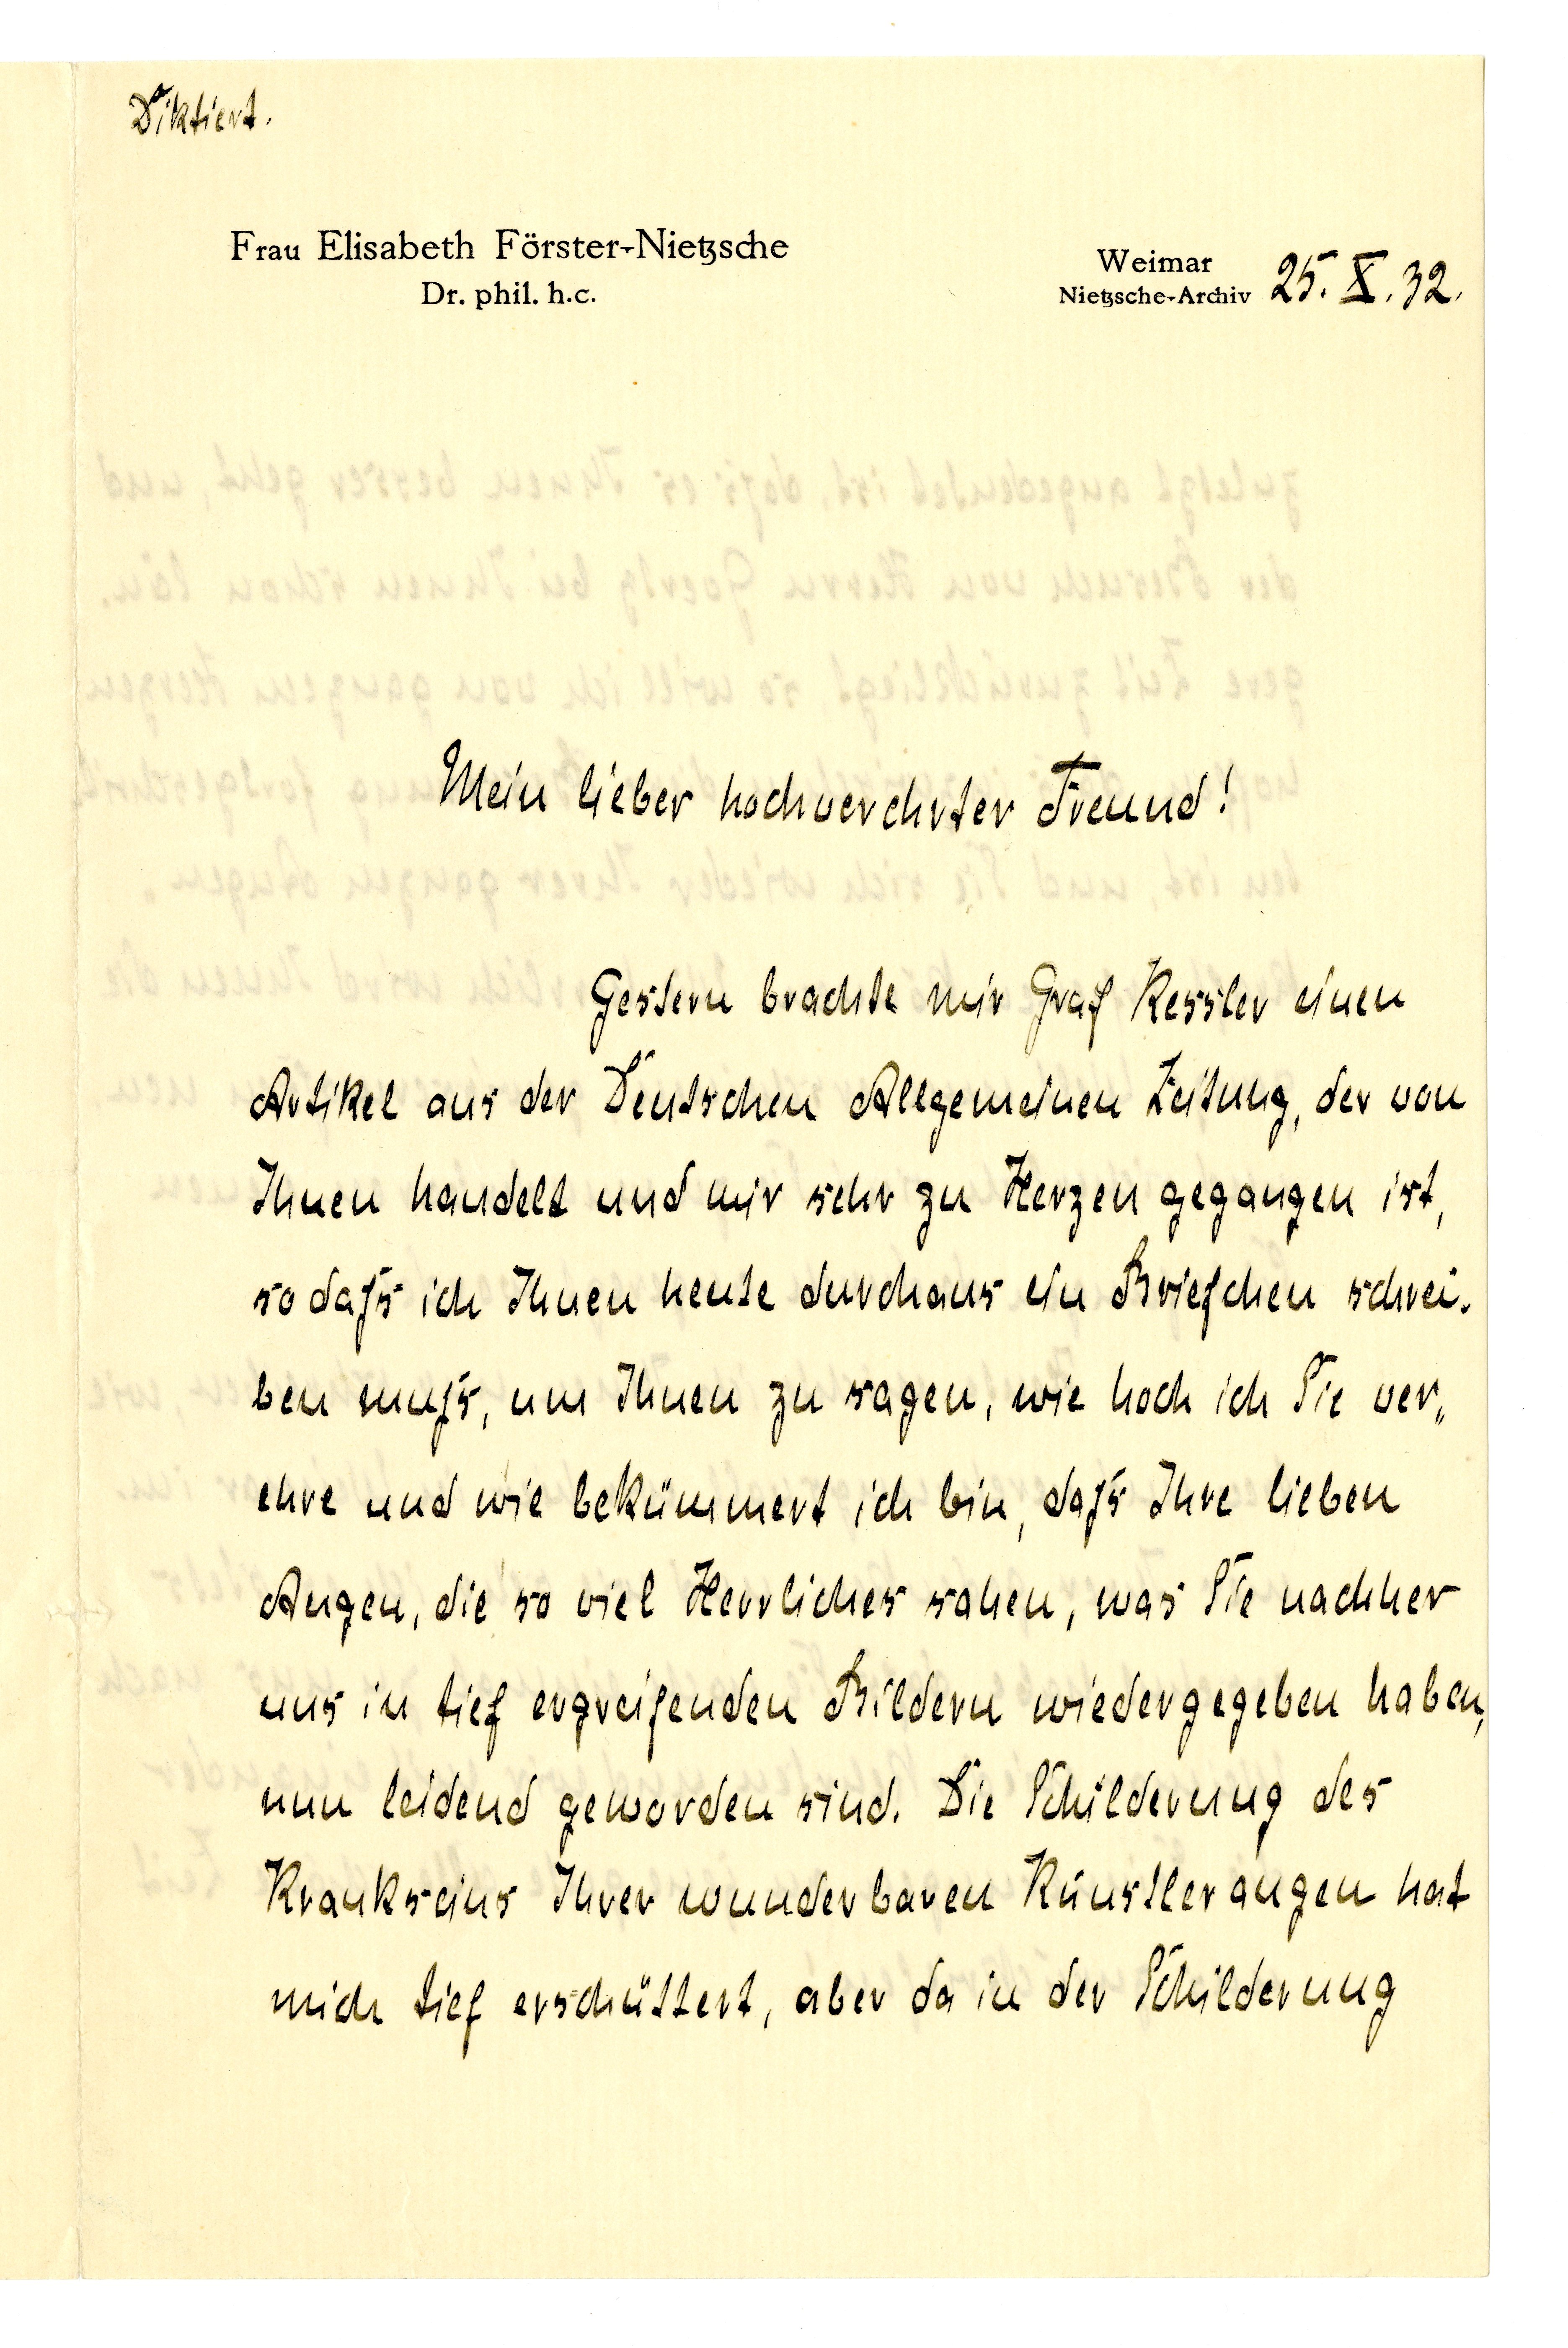 Diktiert.
Frau Elisabeth Förster-Nietzsche
Dr. phil. h.c.
Weimar
Nietzsche-Archiv 25. X. 32.
Mein lieber hochverehrter Freund!
Gestern brachte mir Graf Kessler einen
Artikel aus der Deutschen Allgemeinen Zeitung, der von
Ihnen handelt und mir sehr zu Herzen gegangen ist,
so daſs ich Ihnen heute durchaus ein Briefchen schrei-
ben muſs, um Ihnen zu sagen, wie hoch ich Sie ver„
ehre und wie bekümmert ich bin, daſs Ihre lieben
Augen, die so viel Herrliches sahen, was Sie nachher
uns in tief ergreifenden Bildern wiedergegeben haben,
nun leidend geworden sind. Die Schilderung des
Krankseins Ihrer wunderbaren Künstleraugen hat
mich tief erschüttert, aber da in der Schilderung